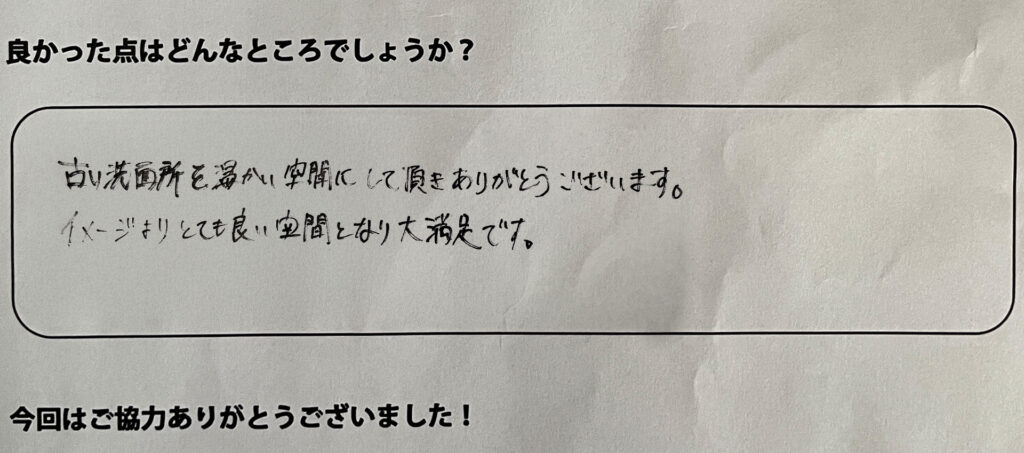 良かった点はどんなところでしょうか？
古い洗面所を温かい空間にして頂きありがとうございます。
イメージよりとても良い空間となり大満足です。
今回はご協力ありがとうございました！